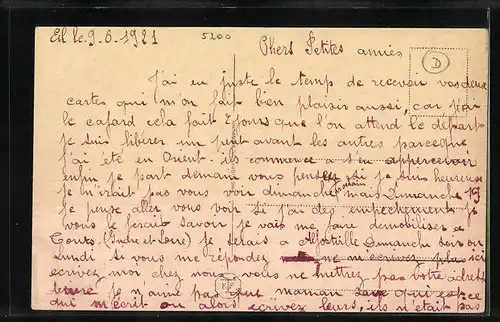 le 9.6.1921
5200
Chers Petites amies
D
J'ai eu juste le temps de recevoir vos deux
cartes qui m'on fait bien plaisir aussi, car j'ai
le cafard cela fait 2 jours que l'on attend le départ
je suis libérer un peut avant les autres parceque
j'ai été en Orient. ils commence a s'en appercevoir
enfin je part demain vous pensez si je suis heureuse
je n'irait pas vous voir dimanche prochain mais Dimanche 19
je pense aller vous voir si j'ai des empechements je
vous le ferait savoir je vais me faire demobiliser a
Tours (Indre et Loire) je serais a Dimanche soir ou
Lundi Si vous me répondez ne m'écrivez plus ici
ecrivez moi chez nous vous ne mettrez pas votre adresse
je n'aime pas que maman qui est ce
qui m'écrit ou alors écrivez leurs, ils n'était pas